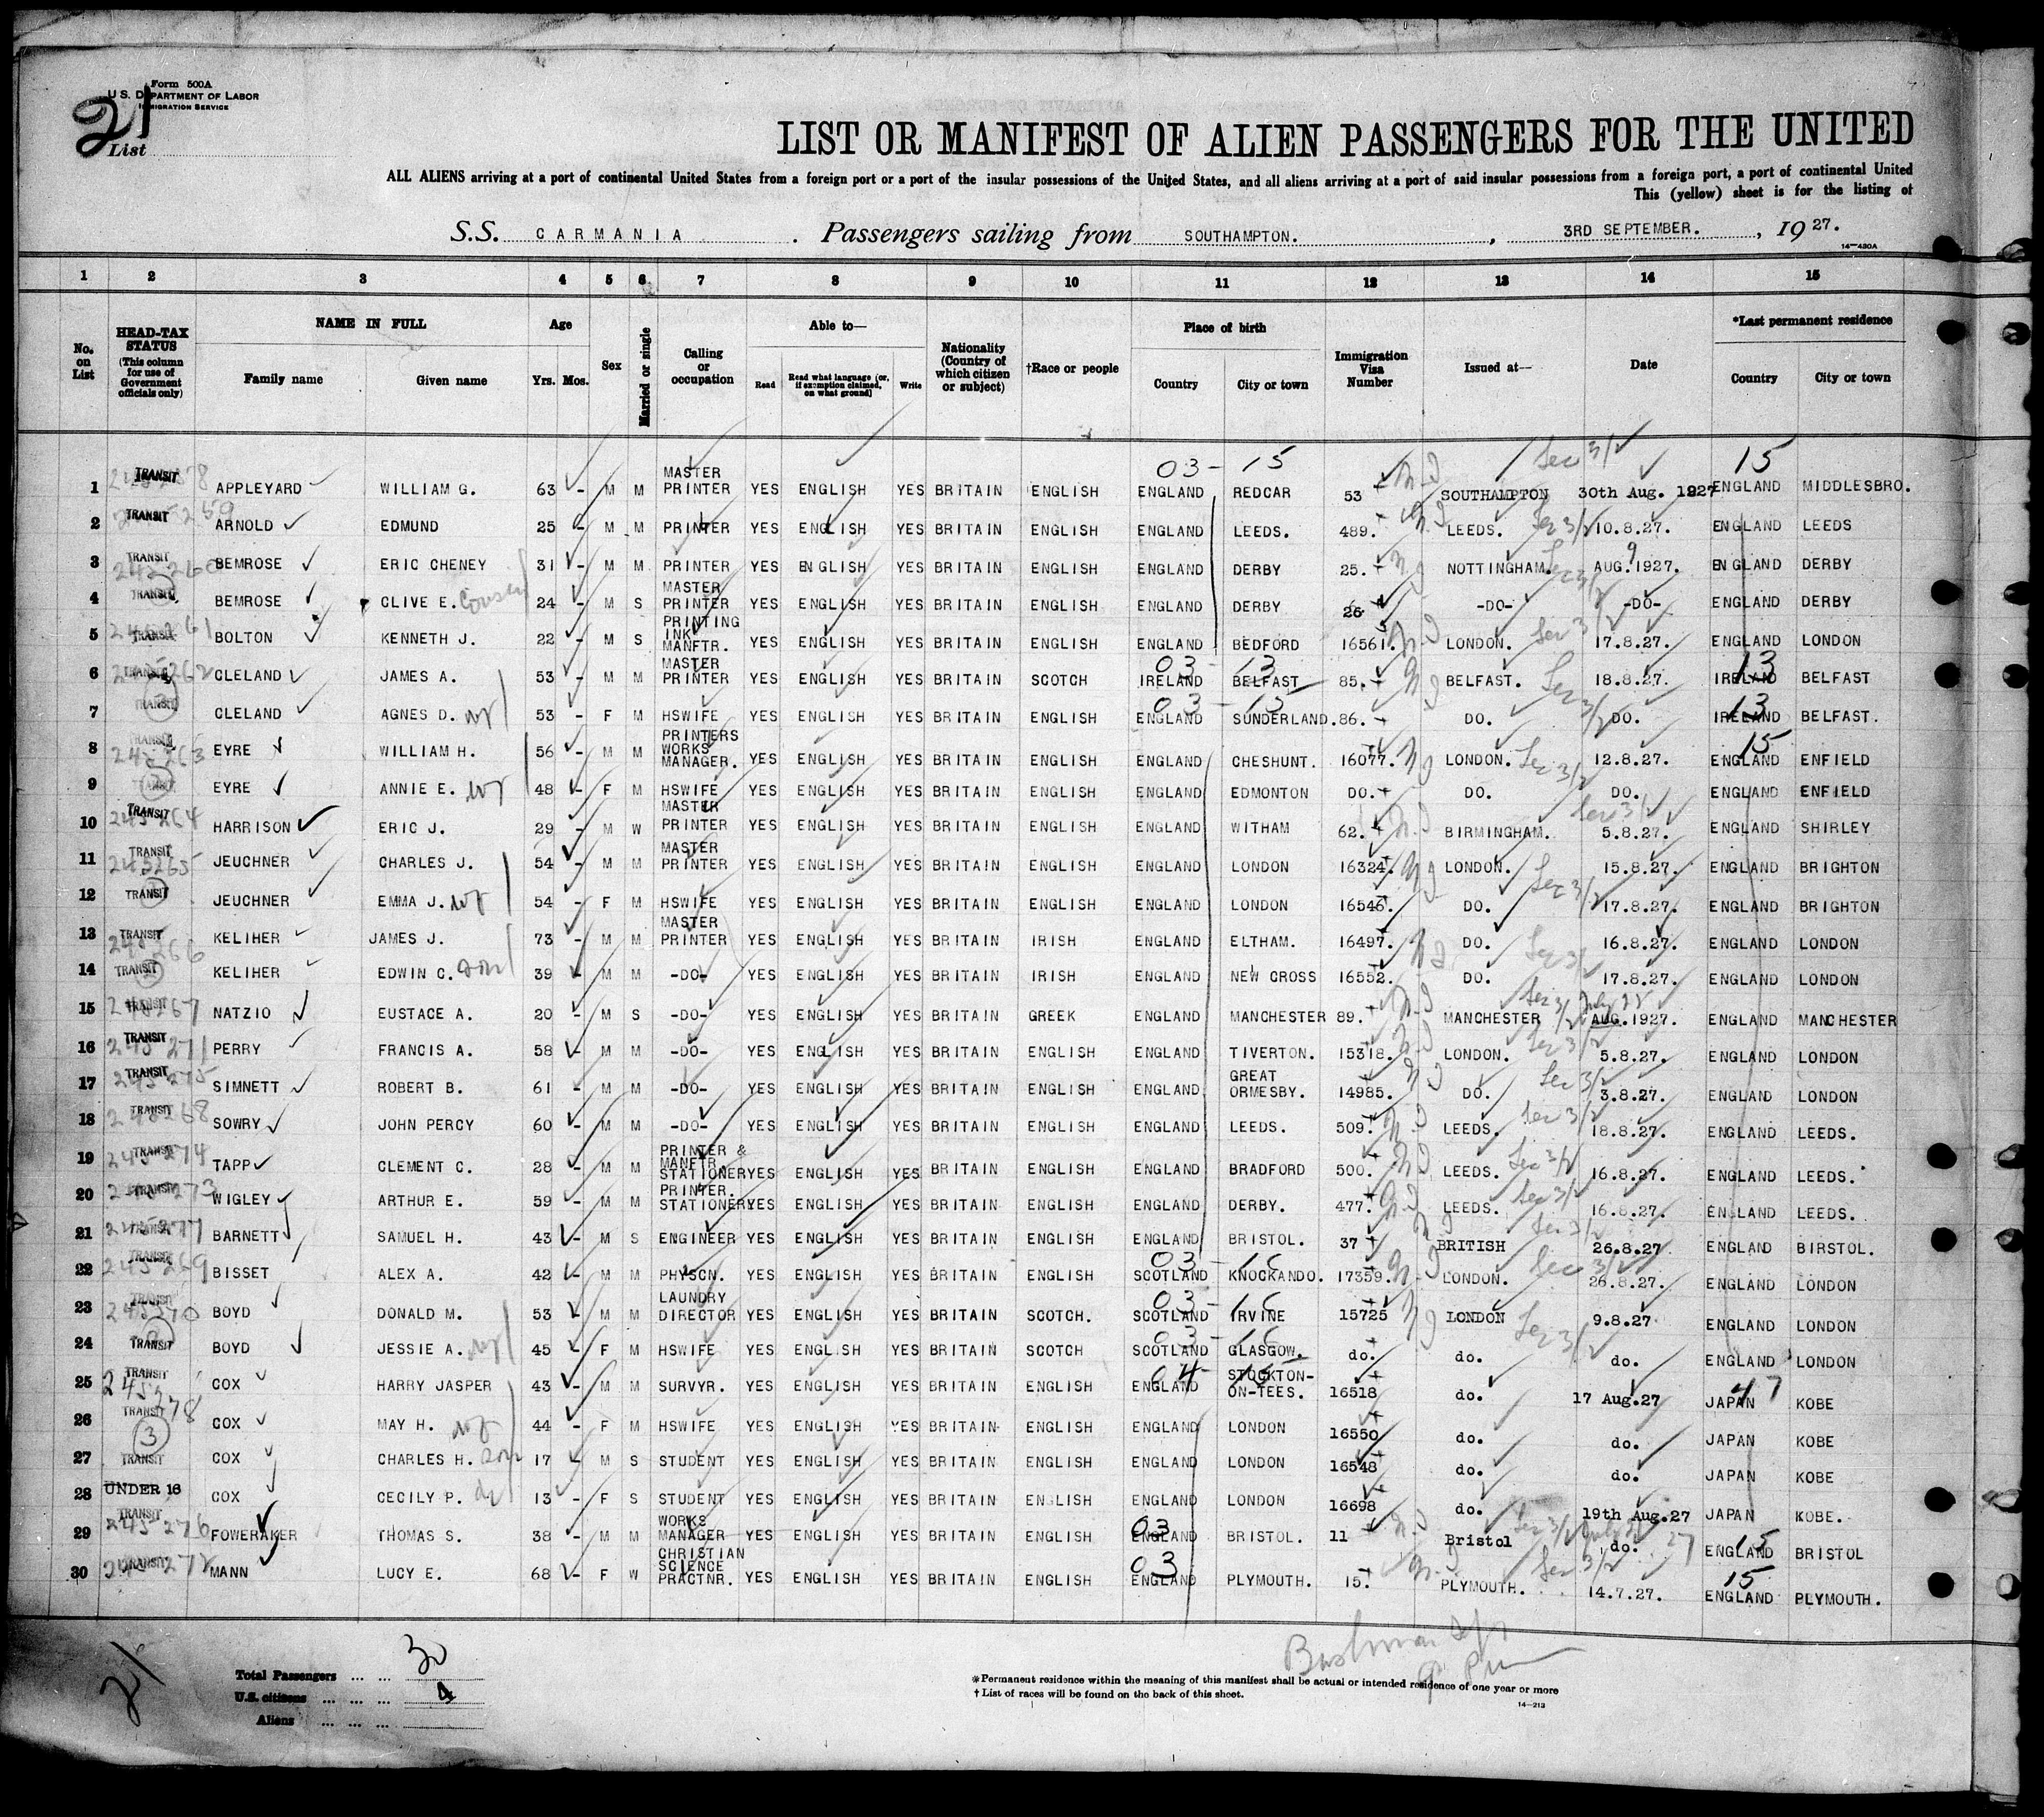 Form 500A
U.S. DEPARTMENT OF LABOR
IMMIGRATION SERVICE
21
List
LIST OR MANIFEST OF ALIEN PASSENGERS FOR THE UNITED
ALL ALIENS arriving at a port of continental United States from a foreign port or a port of the insular possessions of the United States, and all aliens arriving at a port of said insular possessions from a foreign port, a port of continental United
This (yellow) sheet is for the listing of
S.S. CARMANIA. Passengers sailing from SOUTHAMPTON., 3RD SEPTEMBER., 1927.
14—430A
1 2 3 4 5 6 7 8 9 10 11 12 13 14 15
No. on List
HEAD-TAX STATUS (This column for use of Government officials only)
NAME IN FULL Family name Given name
Age Yrs. Mos.
Sex
Married or single
Calling or occupation
Able to— Read Read what language (or, if exemption claimed, on what ground) Write
Nationality (Country of which citizen or subject)
†Race or people
Place of birth Country City or town
Immigration Visa Number
Issued at—
Date
*Last permanent residence Country City or town
03 - 15 Sec 3/2 15
1 TRANSIT APPLEYARD WILLIAM G. 63 - M M MASTER PRINTER YES ENGLISH YES BRITAIN ENGLISH ENGLAND REDCAR 53 SOUTHAMPTON 30th Aug. 1927 ENGLAND MIDDLESBRO.
2 TRANSIT ARNOLD EDMUND 25 - M M PRINTER YES ENGLISH YES BRITAIN ENGLISH ENGLAND LEEDS. 489. LEEDS. Sec 3/2 10.8.27. ENGLAND LEEDS
3 TRANSIT BEMROSE ERIC CHENEY 31 - M M PRINTER YES ENGLISH YES BRITAIN ENGLISH ENGLAND DERBY 25. NOTTINGHAM. Sec 3/2 AUG. 9 1927. ENGLAND DERBY
4 TRANSIT BEMROSE CLIVE E. Cousin 24 - M S MASTER PRINTER YES ENGLISH YES BRITAIN ENGLISH ENGLAND DERBY 26 -DO- -DO- ENGLAND DERBY
5 TRANSIT BOLTON KENNETH J. 22 - M S PRINTING INK MANFTR. YES ENGLISH YES BRITAIN ENGLISH ENGLAND BEDFORD 16561. LONDON. Sec 3/2 17.8.27. ENGLAND LONDON
03 - 13 13
6 TRANSIT 245262 CLELAND JAMES A. 53 - M M MASTER PRINTER YES ENGLISH YES BRITAIN SCOTCH IRELAND BELFAST 85. BELFAST. Sec 3/2 18.8.27. IRELAND BELFAST
03 - 15 13
7 TRANSIT CLELAND AGNES D. wf 53 - F M HSWIFE YES ENGLISH YES BRITAIN ENGLISH ENGLAND SUNDERLAND. 86. DO. DO. IRELAND BELFAST.
15
8 TRANSIT 245263 EYRE WILLIAM H. 56 - M M PRINTERS WORKS MANAGER. YES ENGLISH YES BRITAIN ENGLISH ENGLAND CHESHUNT. 16077. LONDON. Sec 3/2 12.8.27. ENGLAND ENFIELD
9 TRANSIT EYRE ANNIE E. wf 48 - F M HSWIFE YES ENGLISH YES BRITAIN ENGLISH ENGLAND EDMONTON DO. DO. DO. ENGLAND ENFIELD
10 TRANSIT 245264 HARRISON ERIC J. 29 - M W MASTER PRINTER YES ENGLISH YES BRITAIN ENGLISH ENGLAND WITHAM 62. BIRMINGHAM. Sec 3/2 5.8.27. ENGLAND SHIRLEY
11 TRANSIT 245265 JEUCHNER CHARLES J. 54 - M M MASTER PRINTER YES ENGLISH YES BRITAIN ENGLISH ENGLAND LONDON 16324. LONDON. Sec 3/2 15.8.27. ENGLAND BRIGHTON
12 TRANSIT JEUCHNER EMMA J. wf 54 - F M HSWIFE YES ENGLISH YES BRITAIN ENGLISH ENGLAND LONDON 16546. DO. 17.8.27. ENGLAND BRIGHTON
13 TRANSIT 245266 KELIHER JAMES J. 73 - M M MASTER PRINTER YES ENGLISH YES BRITAIN IRISH ENGLAND ELTHAM. 16497. DO. Sec 3/2 16.8.27. ENGLAND LONDON
14 TRANSIT KELIHER EDWIN C. son 39 - M M -DO- YES ENGLISH YES BRITAIN IRISH ENGLAND NEW CROSS 16552. DO. 17.8.27. ENGLAND LONDON
15 TRANSIT 245267 NATZIO EUSTACE A. 20 - M S -DO- YES ENGLISH YES BRITAIN GREEK ENGLAND MANCHESTER 89. MANCHESTER Sec 3/2 July 28 AUG. 1927. ENGLAND MANCHESTER
16 TRANSIT 245271 PERRY FRANCIS A. 58 - M M -DO- YES ENGLISH YES BRITAIN ENGLISH ENGLAND TIVERTON. 15318. LONDON. Sec 3/2 5.8.27. ENGLAND LONDON
17 TRANSIT 245275 SIMNETT ROBERT B. 61 - M M -DO- YES ENGLISH YES BRITAIN ENGLISH ENGLAND GREAT ORMESBY. 14985. DO. Sec 3/2 3.8.27. ENGLAND LONDON
18 TRANSIT 245268 SOWRY JOHN PERCY 60 - M M -DO- YES ENGLISH YES BRITAIN ENGLISH ENGLAND LEEDS. 509. LEEDS. Sec 3/2 18.8.27. ENGLAND LEEDS.
19 TRANSIT 245274 TAPP CLEMENT C. 28 - M M PRINTER & MANFTR. STATIONERY YES ENGLISH YES BRITAIN ENGLISH ENGLAND BRADFORD 500. LEEDS. Sec 3/2 16.8.27. ENGLAND LEEDS.
20 TRANSIT 245273 WIGLEY ARTHUR E. 59 - M M PRINTER. STATIONERY YES ENGLISH YES BRITAIN ENGLISH ENGLAND DERBY. 477. LEEDS. Sec 3/2 16.8.27. ENGLAND LEEDS.
21 TRANSIT 245277 BARNETT SAMUEL H. 43 - M S ENGINEER YES ENGLISH YES BRITAIN ENGLISH ENGLAND BRISTOL. 37 BRITISH Sec 3/2 26.8.27 ENGLAND BIRSTOL.
22 TRANSIT 245269 BISSET ALEX A. 42 - M M PHYSCN. YES ENGLISH YES BRITAIN ENGLISH SCOTLAND KNOCKANDO. 17359. LONDON. Sec 3/2 26.8.27. ENGLAND LONDON
23 TRANSIT 245270 BOYD DONALD M. 53 - M M LAUNDRY DIRECTOR YES ENGLISH YES BRITAIN SCOTCH. SCOTLAND IRVINE 15725 LONDON Sec 3/2 9.8.27 ENGLAND LONDON
24 TRANSIT BOYD JESSIE A. wf 45 - F M HSWIFE YES ENGLISH YES BRITAIN SCOTCH SCOTLAND GLASGOW. do. do. do. ENGLAND LONDON
25 TRANSIT 245278 COX HARRY JASPER 43 - M M SURVYR. YES ENGLISH YES BRITAIN ENGLISH ENGLAND STOCKTON-ON-TEES. 16518 do. 17 Aug.27 JAPAN 47 KOBE
26 TRANSIT COX MAY H. wf 44 - F M HSWIFE YES ENGLISH YES BRITAIN ENGLISH ENGLAND LONDON 16550 do. do. JAPAN KOBE
27 3 TRANSIT COX CHARLES H. son 17 - M S STUDENT YES ENGLISH YES BRITAIN ENGLISH ENGLAND LONDON 16548 do. do. JAPAN KOBE
28 UNDER 16 COX CECILY P. 13 - F S STUDENT YES ENGLISH YES BRITAIN ENGLISH ENGLAND LONDON 16698 do. 19th Aug.27 JAPAN KOBE.
29 TRANSIT 245276 FOWERAKER THOMAS S. 38 - M M WORKS MANAGER YES ENGLISH YES BRITAIN ENGLISH 03 ENGLAND BRISTOL. 11 Bristol Sec 3/2 do. 27 15 ENGLAND BRISTOL
30 TRANSIT 245272 MANN LUCY E. 68 - F W CHRISTIAN SCIENCE PRACTNR. YES ENGLISH YES BRITAIN ENGLISH 03 ENGLAND PLYMOUTH. 15. PLYMOUTH. Sec 3/2 14.7.27. 15 ENGLAND PLYMOUTH.
21
Total Passengers ... ... 30
U.S. citizens ... ... ... 4
Aliens ... ... ...
*Permanent residence within the meaning of this manifest shall be actual or intended residence of one year or more
†List of races will be found on the back of this sheet.
14—213